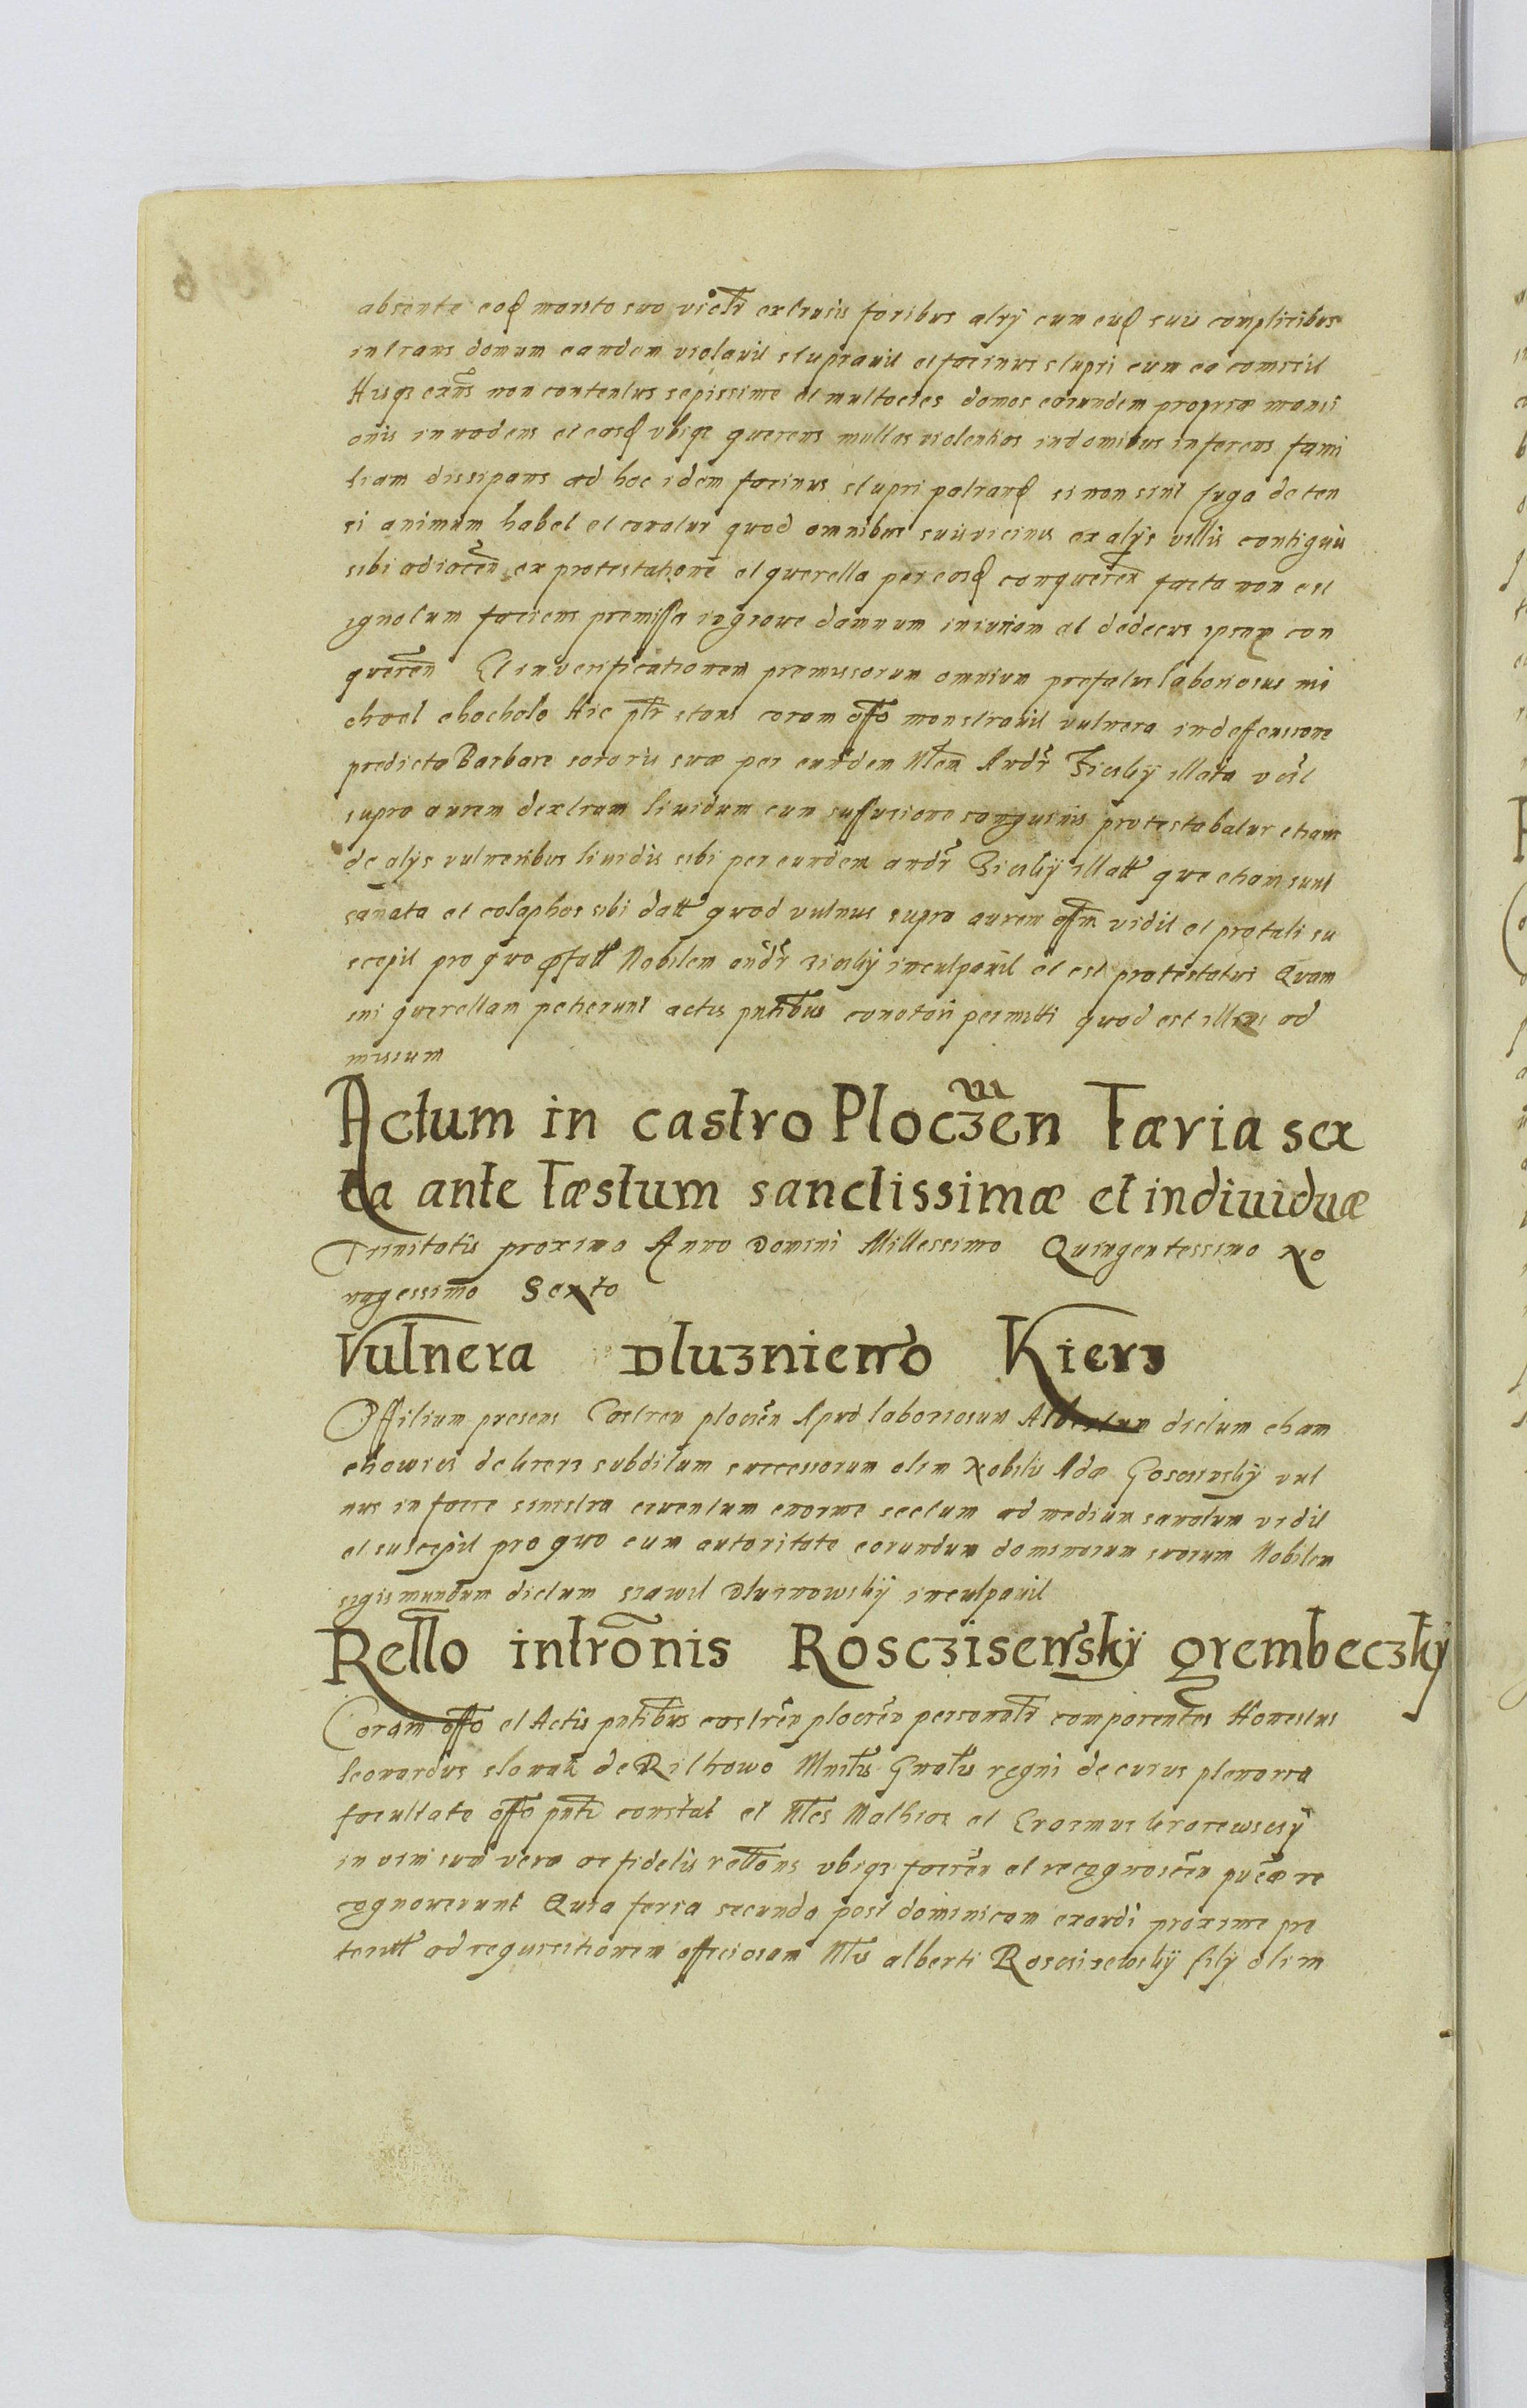 absente eod marito suo violtr extrusis foribus alys cum eusd suis complicibus
intrans domum eandem violauit stuprauit et facinus stupri cum ea comisit
Hisqz exns non contentus sepissime et multocies domos eorundem propriæ mansi
onis inuadens et eosd vbiqz querens multas violentias in domibus inferens fami
liam dissipans ad hoc idem facinus stupri patrand si non sint fuga deten
ti animum habet et conatur quod omnibus suis vicinis ex alys villis contiguis
sibi adiacen ex protestatione et querella per eosd conqueren facta non est
ignotum faciens premissa in graue damnum iniuriam et dedecus ipsorum con
queren Et in verificationem premissorum omnium prefatus laboriosus mi
chael chochola Hic ptr stans coram offo monstrauit vulnera in deffensione
predictæ Barbare sororis suæ per eundem Nlem Andr illata vcil
supra aurem dextram liuidum cum suffusione sanguinis protestabatur etiam
de alys vulneribus liuidis sibi per eundem andr illatt que etiam sunt
sanata et colaphos sibi datt quod vulnus supra aurem offm vidit et pro tali su
scepit pro quo pfatt Nobilem andr inculpauit et est protestatus Quam
sui querellam petierunt actis pntibus conotari permitti quod est illis ad
missum
Actum in castro Ploczen Færia sex
ta ante fæstum sanctissimæ et indiuiduæ
Trinitatis proximo Anno Domini Millessimo Quingentessimo No
nagessimo Sexto
Vulnera Dluzniewo Kierz
Offitium presens Castren plocen Apud laboriosum Albertum dictum cham
chowicz de kierz subditum successorum olim Nobilis Adæ vul
nus in facie sinistra cruentum enorme sectum ad medium sanatum vidit
et suscepit pro quo cum autoritate eorundum dominorum suorum Nobilem
sigismundum dictum Dluznowskÿ inculpauit
Rello intronis Rosczisewskÿ grembeczkÿ
Coram offo et Actis pntibus castren plocen personaltr comparentes Honestus
leonardus slowak de Rilkowo Mnistr Gnalis regni de cuius plenaria
facultate offo pnti constat et Nles Mathias et Erasmus
in vim suæ veræ ac fidelis rellons vbiqz facien et recognoscen pueæ re
cognouerunt Quia feria secunda post dominicam exaudi proxime pre
teritt ad requisitionem officiosam Nlis alberti Rosciszewskÿ filÿ olim